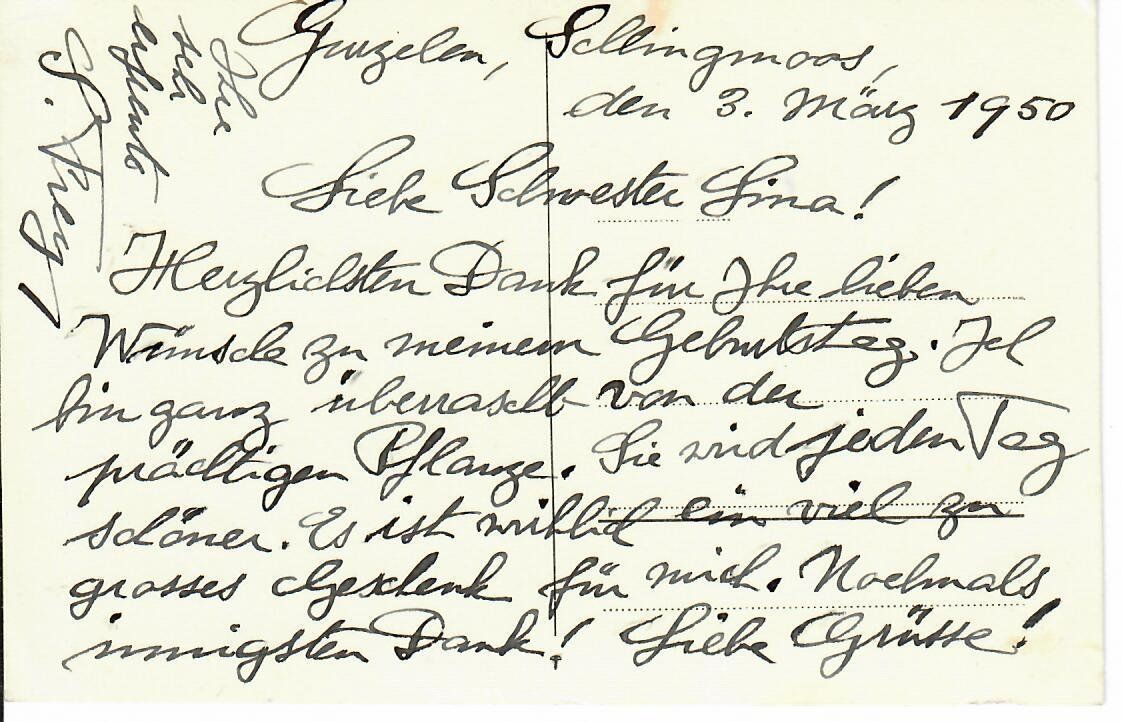 Gurzelen, Sellingmoos,
den 3. März 1950
Liebe Schwester Lina!
Herzlichsten Dank für Ihre lieben
Wünsche zu meinem Geburtstag. Ich
bin ganz überrascht von der
prächtigen Pflanze. Sie wird jeden Tag
schöner. Es ist wirklich ein viel zu
grosses Geschenk für mich. Nochmals
innigsten Dank! Liebe Grüsse!
Ihre
sehr
erfreute